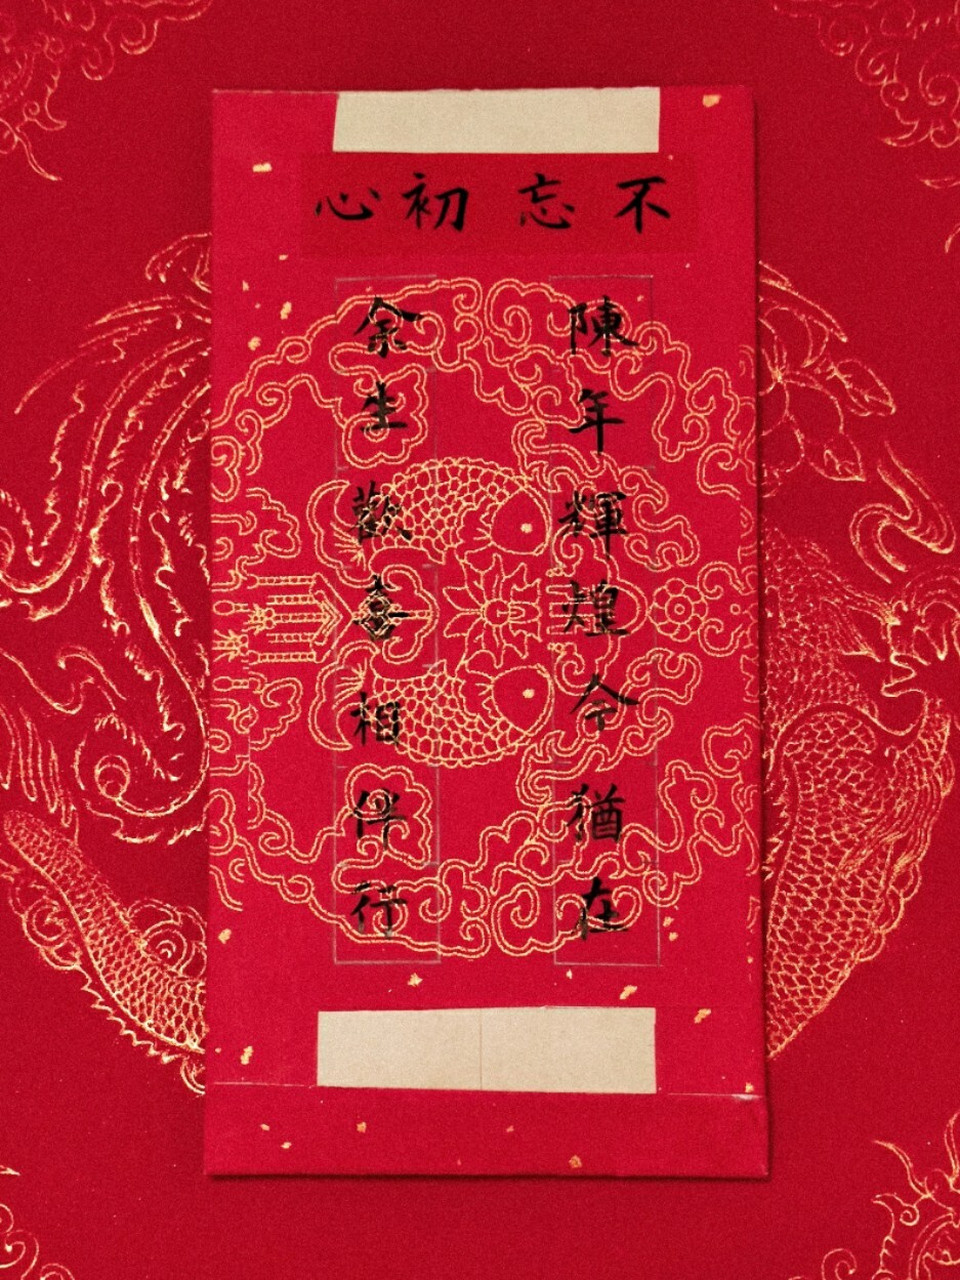 不忘初心
陳年輝煌今猶在
余生歡喜相伴行